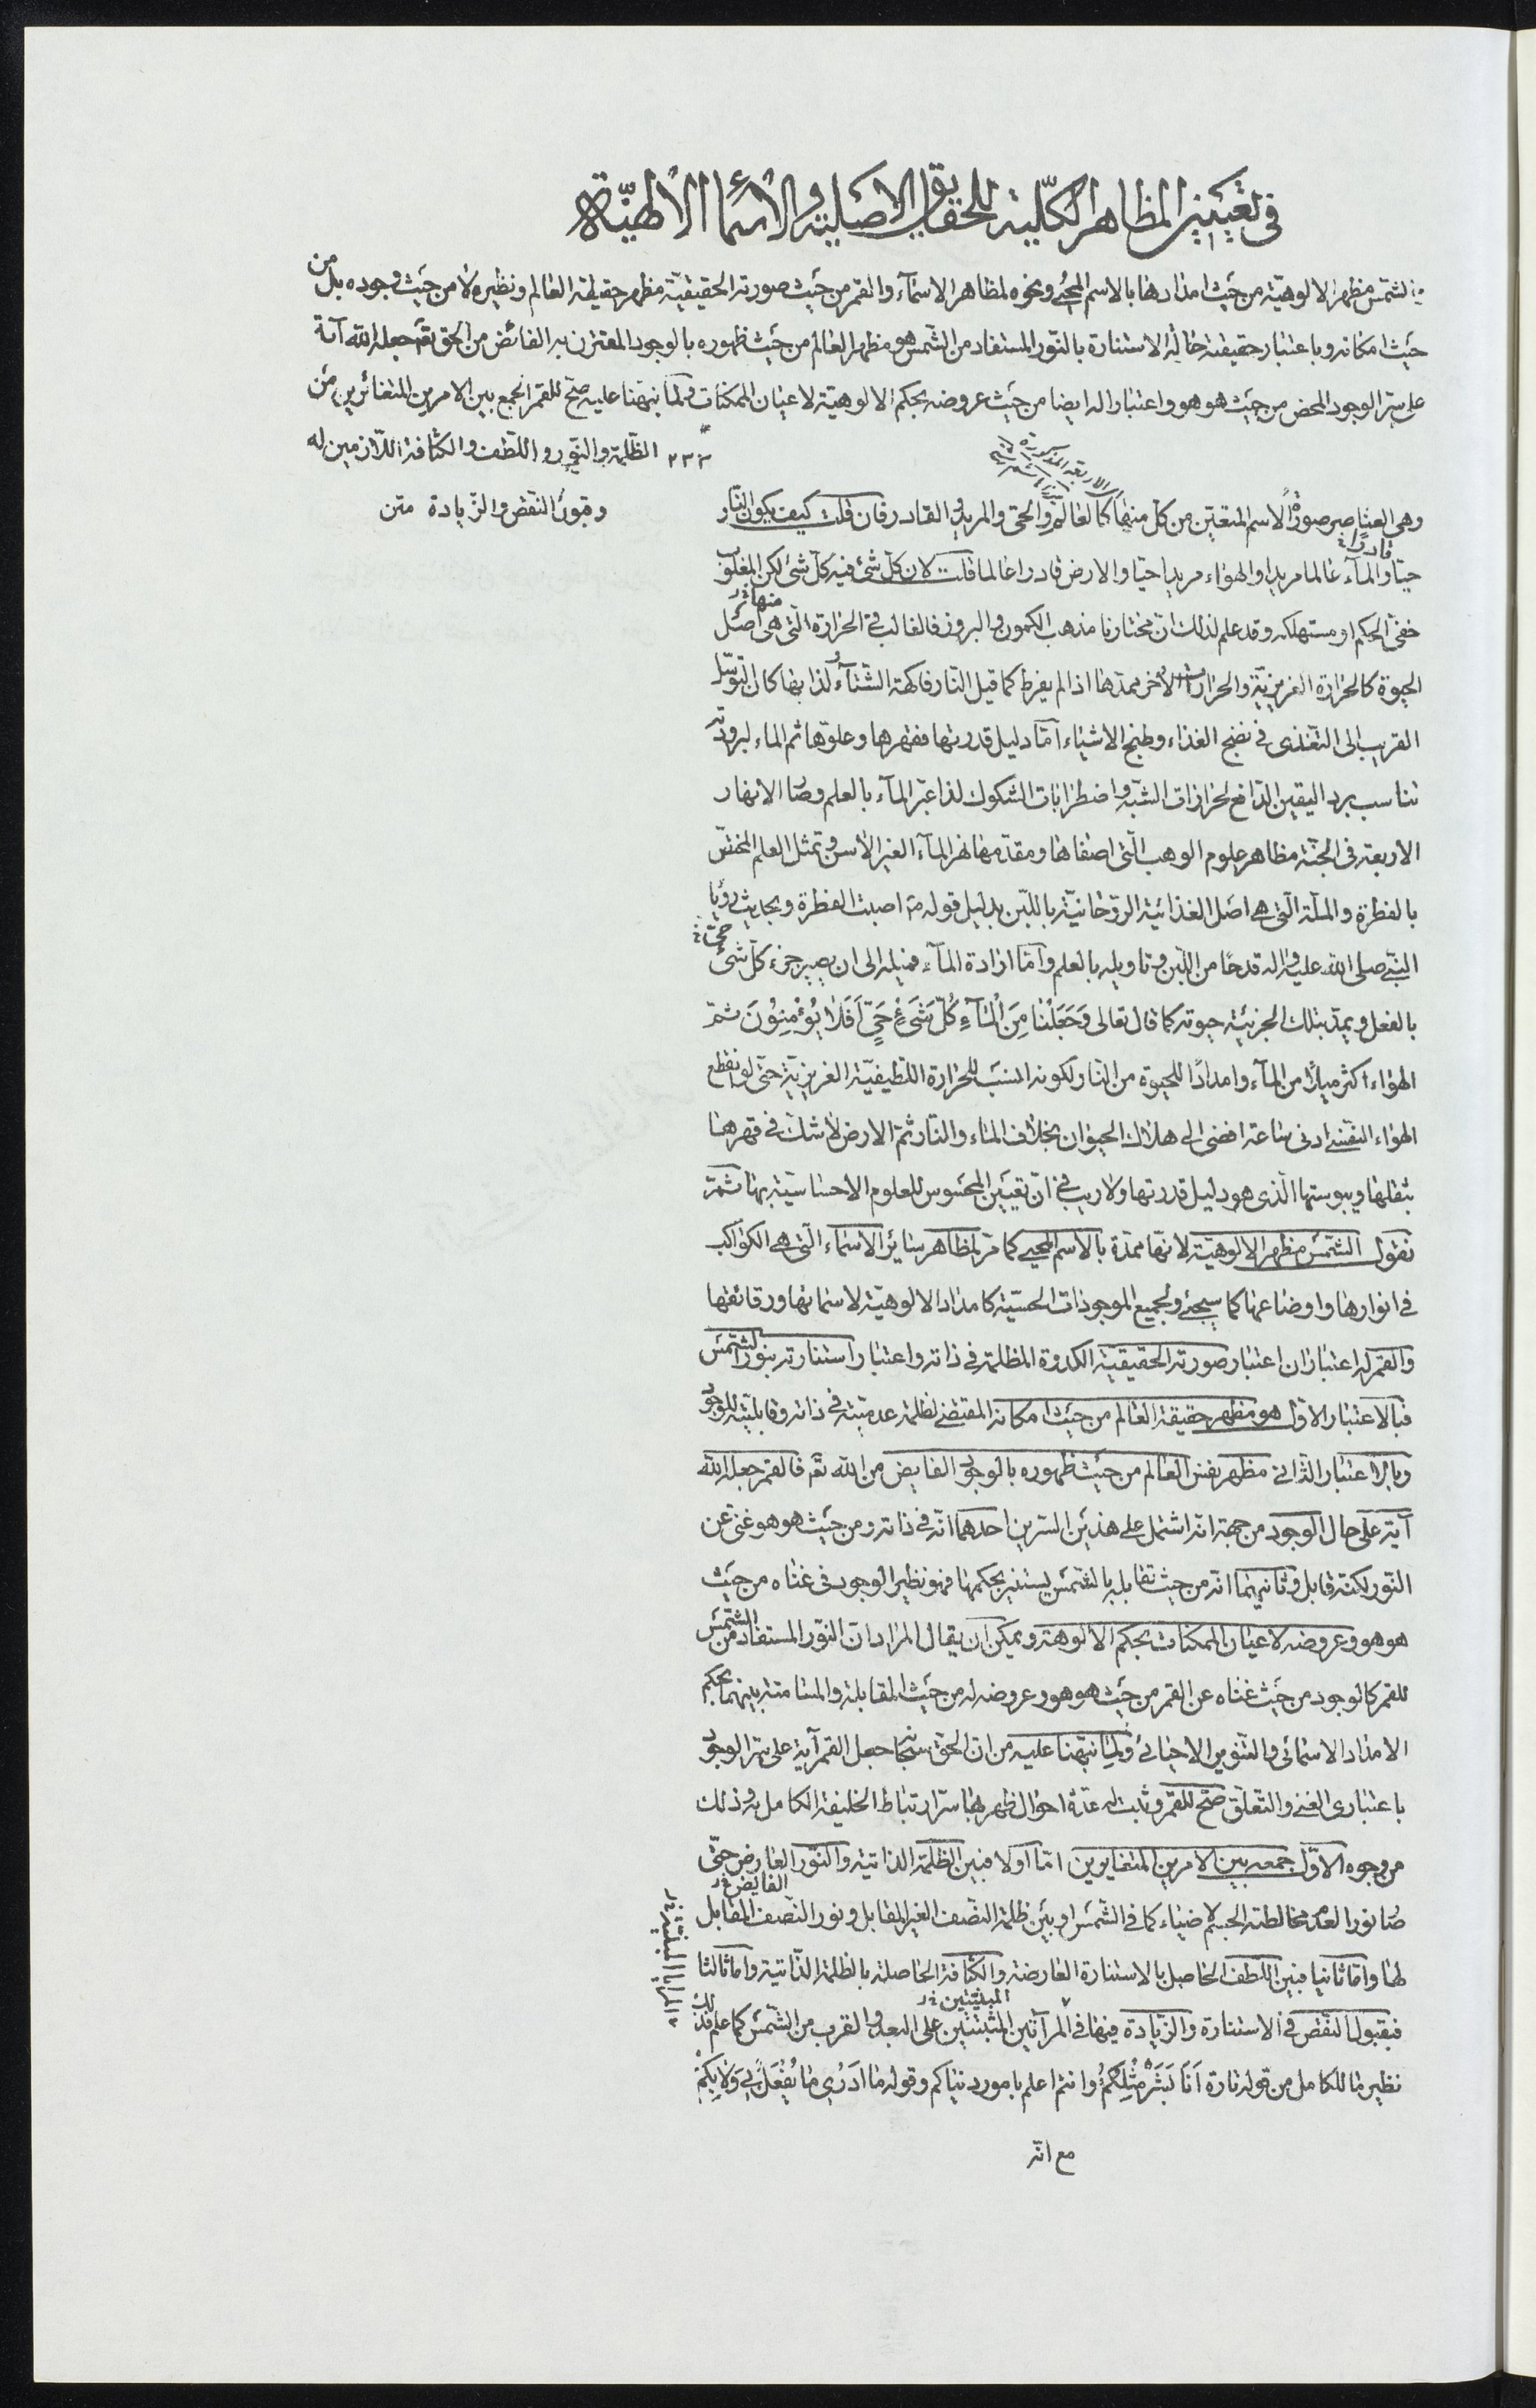 في تعيين المظاهر الكلية للحقايق الاصلية والأسماء الالهيّة
الشمس مظهر الالوهيّة من حيث امدادها بالاسم المحيى ونحوه لمظاهر الاسمآء والقمر من حيث صورته الحقيقيّة مظهر حقيقة العالم ونظيره لا من حيث وجوده بل من
حيث امكانه وباعتبار حقيقته حالة الاستنارة بالنّور المستفاد من الشّمس هو مظهر العالم من حيث ظهوره بالوجود المقترن به الفائض من الحق تعَ جعله الله آية
على سرّ الوجود المحض من حيث هو هو واعتبار اله ايضا من حيث عروضه بحكم الالوهيّة لاعيان الممكنات ولما نبّهنا عليه صحّ للقمر الجمع بين الامرين المتغائرين من
٢٣٢ الظّلمة والنّور واللّطف والكثافة اللّازمين له
وقبول النّقص والزّيادة متن
الاربعة المذكورة
وهى العناصر صورة الاسم المتعيّن من كلّ منهما كالعالم والحىّ والمريد والقادر فان قلت كيف يكون النّار
قادرا
حيّا والمآء عالما مريدا والهواء مريدا حيّا والارض قادرا عالما قلت لان كلّ شئ فيه كلّ شئ لكن المغلوب
منها
خفىّ الحكم او مستهلكه وقد علم لذلك انّ مختارنا مذهب الكمون والبروز فالغالب فى الحرارة الّتى هى اصل
الحيوة كالحرارة الغريزيّة والحرارات الأخر ممدّها اذا لم يفرط كما قيل النّار فاكهة الشّتآء لذا بها كان التوسّل
القريب الى التغذى فى نضج الغذاء وطبخ الاشياء امّا دليل قدرتها فقهرها وعلوّها ثم الماء لبرودته
تناسب برد اليقين الدّافع لحزازات الشّبه واضطرابات الشكوك لذا عبّر المآء بالعلم وصار الانهار
الاربعة فى الجنّة مظاهر علوم الوهب الّتى اصفاها ومقدّمها نهر المآء الغير الآسن وتمثل العلم المختصّ
بالفطرة والملّة الّتى هى اصل الغذائيّة الرّوحانيّة باللّبن بدليل قوله ص اصبت الفطرة وبحديث رؤيا
النّبى صلى الله عليه واله قدحًا من اللّبن وتاويله بالعلم وامّا ارادة المآء فميله الى ان يصير جزء كلّ شئ حىّ
بالفعل ويمدّ بتلك الجزئيّة حيوته كما قال تعالى وَجَعَلْنَا مِنَ الْمَآءِ كُلَّ شَىْءٍ حَىٍّ اَفَلَا يُؤْمِنُونَ ثمّ
الهواء اكثر ميلًا من المآء وامدادًا للحيوة من النّار لكونه انسب للحرارة اللّطيفيّة الغريزيّة حتى لو انقطع
الهواء النفسى ادنى ساعة افضى الى هلاك الحيوان بخلاف الماء والنّار ثمّ الارض لا شكّ فى قهرها
بثقلها ويبوستها الّذى هو دليل قدرتها ولا ريب فى انّ تعيّن المحسوس للعلوم الاحساسيّة بها ثمّ
نقول الشّمس مظهر الالوهيّة لانّها ممدّة بالاسم المحيى كما مرّ لمظاهر سائر الاسماء الّتى هى الكواكب
فى انوارها واوضاعها كما سيجئ ولجميع الموجودات الحسّيّة كامداد الالوهيّة لاسمائها ورقائقها
والقمر له اعتباران اعتبار صورته الحقيقيّة الكدرة المظلمة فى ذاته واعتبار استنارته بنور الشّمس
فبالاعتبار الاوّل هو مظهر حقيقة العالم من حيث امكانه المقتضى لظلمة عدميّته فى ذاته وقابليّته للوجود
وبالاعتبار الثّانى مظهر نفس العالم من حيث ظهوره بالوجود الفايض من الله تعَ فالقمر جعله الله
آية على حال الوجود من جهة انّه اشتمل على هذين السّرين احدهما انّه فى ذاته ومن حيث هو هو غنىّ عن
النّور لكنّه قابل وثانيهما انّه من حيث تقابله بالشّمس يستنير بحكمها فهو نظير الوجود فى غناه من حيث
هو هو وعروضه لاعيان الممكنات بحكم الالوهة ويمكن ان يقال المراد انّ النّور المستفاد من الشّمس
للقمر كالوجود من حيث غناه عن القمر من حيث هو هو وعروضه له من حيث المقابلة والمسامتة بينهما بحكم
الامداد الاسمائى والتنوير الاحيائى ولما نبّهنا عليه من انّ الحقّ سبحانه جعل القمر آية على سرّ الوجود
باعتبارى الغنى والتعلّق صحّ للقمر وثابت له عدّة احوال ظهر بها سرّ ارتباط الخليفة الكامل به وذلك
من وجوه الاوّل جمعه بين الامرين المتغايرين امّا اولا فبين الظّلمة الذاتيّة والنّور العارض حتّى
الفايض
صار نورا لعدم مخالطته الجسم لا ضياء كما فى الشّمس او بين ظلمة النصف الغير المقابل ونور النّصف المقابل
لها وامّا ثانيا فبين اللّطف الحاصل بالاستنارة العارضة والكثافة الحاصلة بالظلمة الذّاتيّة واما ثالثا
المبنيّتين
فبقبول النّقص فى الاستنارة والزّيادة فيها فى المرآتين المثبتتين على البعد والقرب من الشّمس كما علم فذلك
نظير ما للكامل من قوله تارة اَنَا بَشَرٌ مِثْلُكُمْ وانتم اعلم بامور دنياكم وقوله ما اَدْرِى مَا يُفْعَلُ بِى وَلَا بِكُمْ
مع انّه